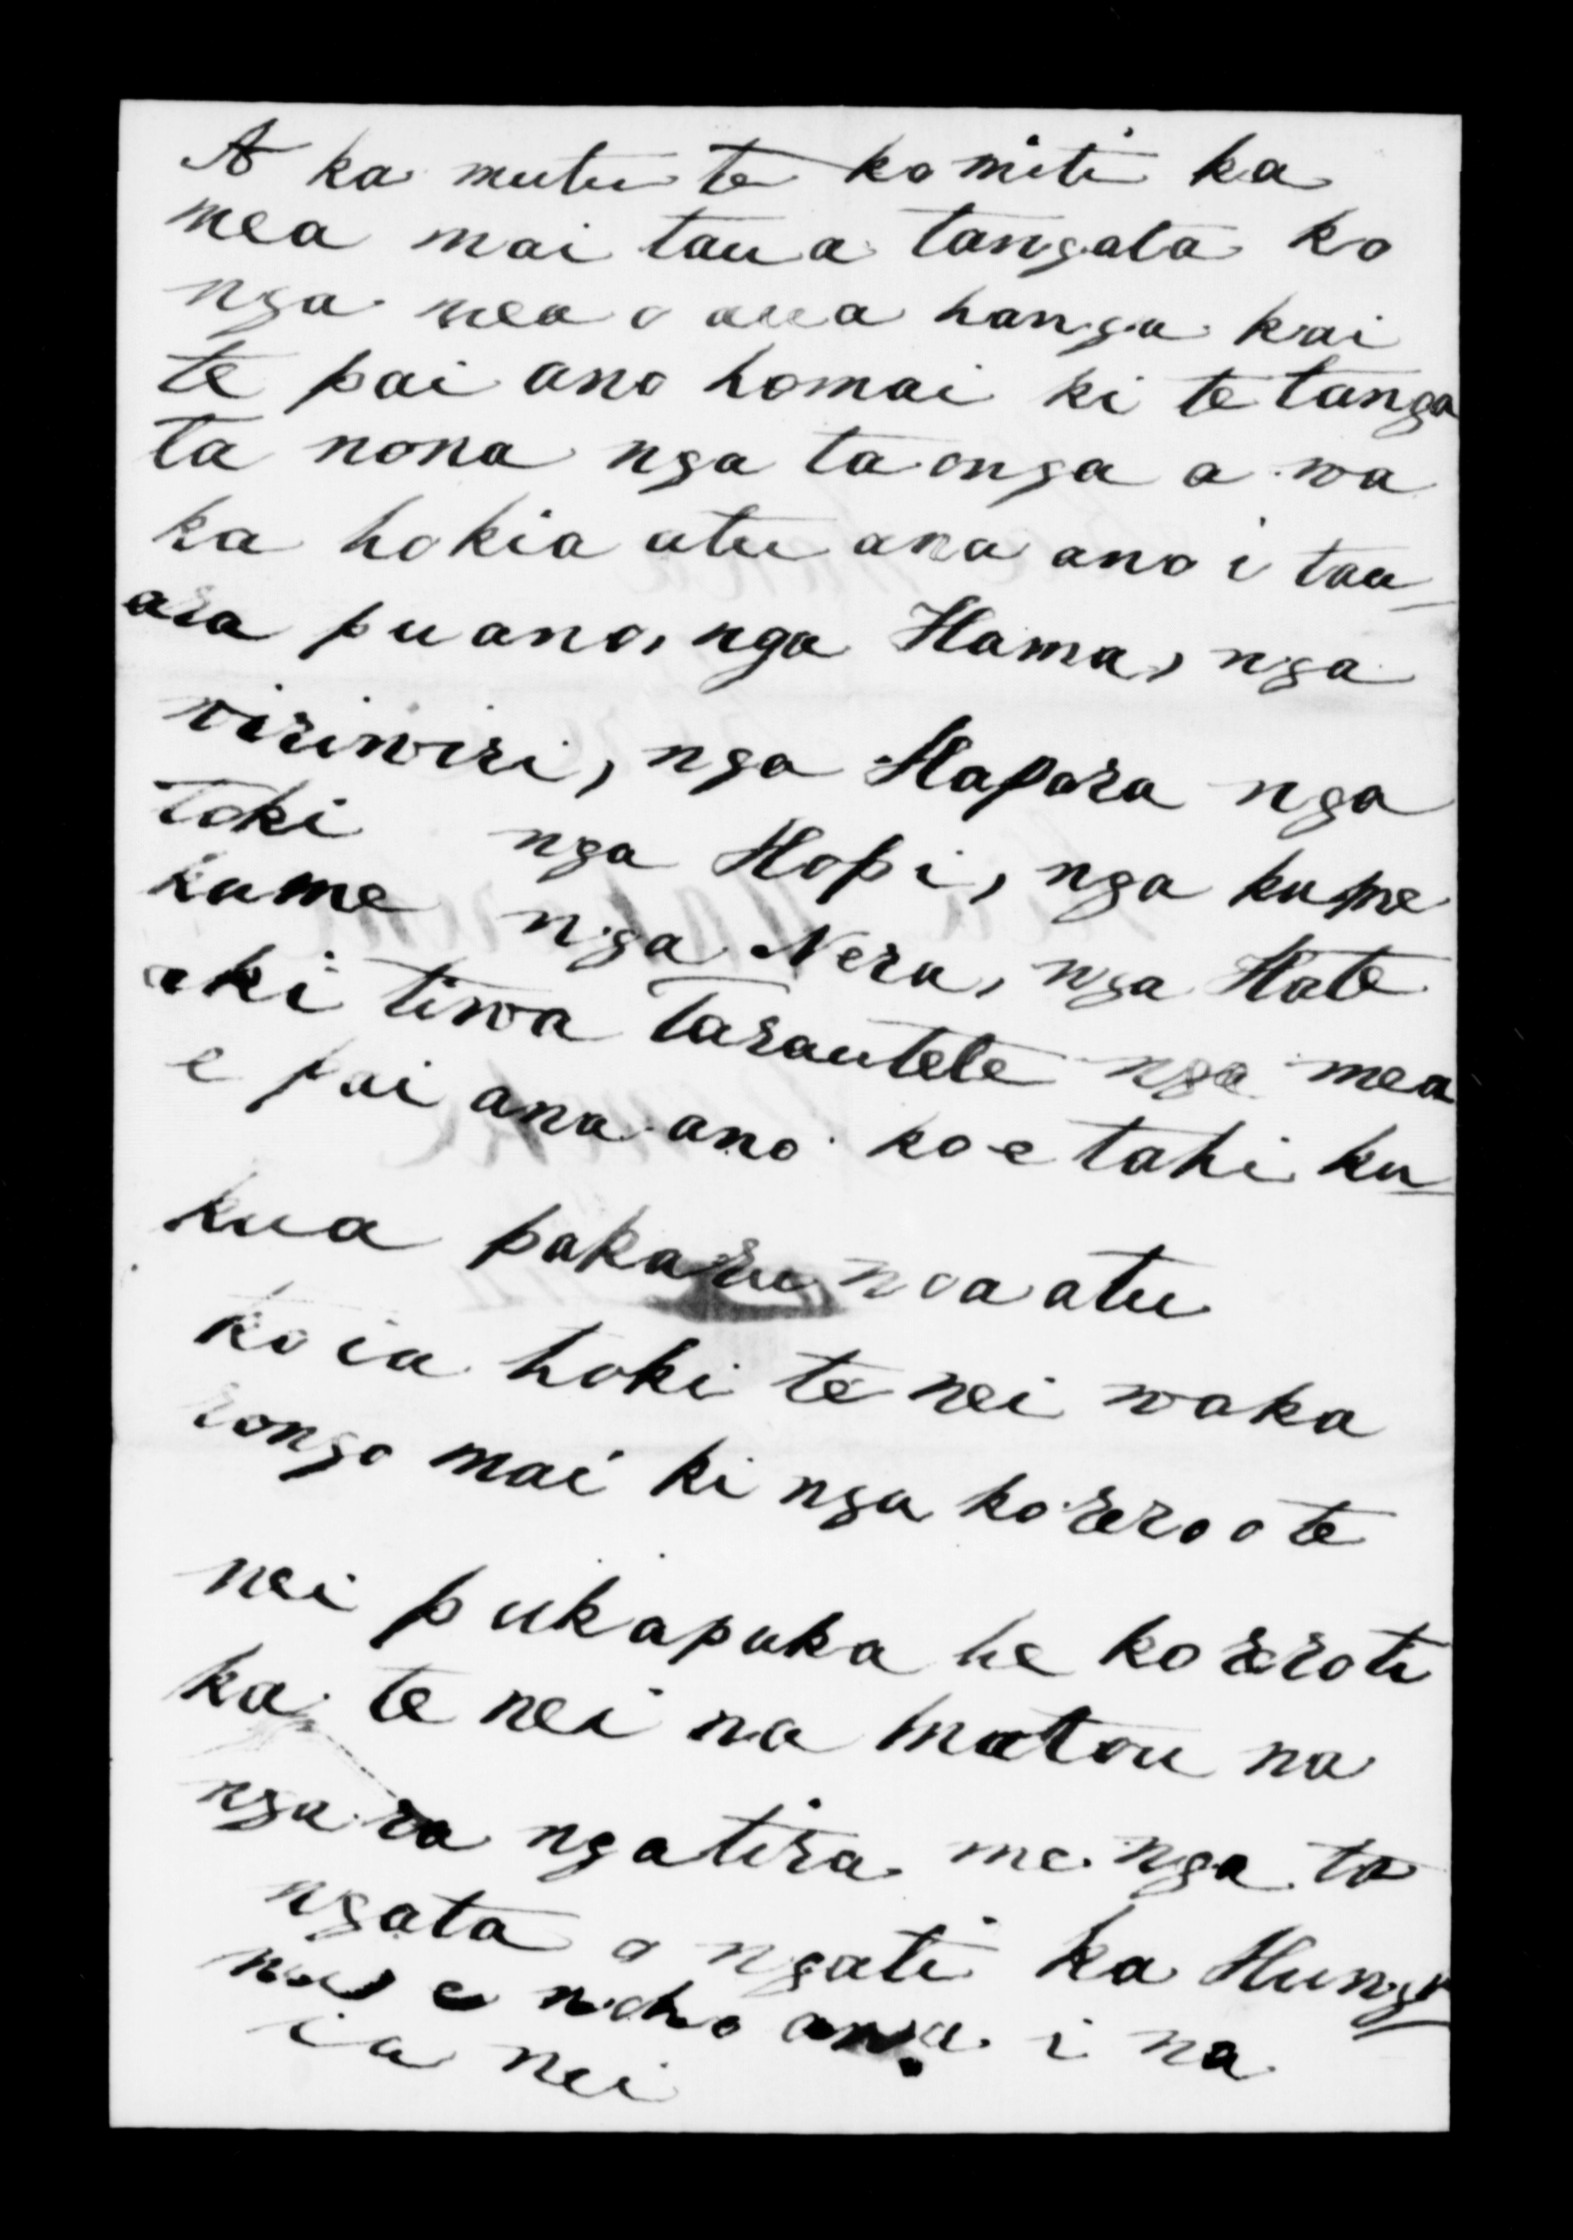 A ka mutu te komiti ka
mea mai taua tangata ko
nga mea o aua hanga kai
te pai ano homai ki te tanga
ta nona nga taonga a wa
ka hokia atu ana ano i tau-
ara pu ano, nga Hama, nga
wiriwiri, nga Hapara nga
toki nga Hopi, nga kume
kume nga Nera, nga Hate
aki tiwa Tarautete nga mea
e pai ana ano ko e tahi ku-
kua pakaru noa atu
ko ia hoki te nei waka
rongo mai ki nga korero o te
nei pukapuka he korero ti
ka te nei na matou na
nga ra ngatira me nga ta
ngata o ngati ka Hungu
nu e noho ana i na
ia nei